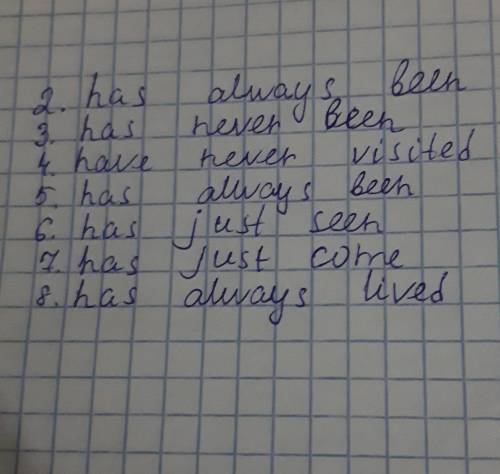 2. has always been
3. has never been
4. have never visited
5. has always been
6. has just seen
7. has just come
8. has always lived